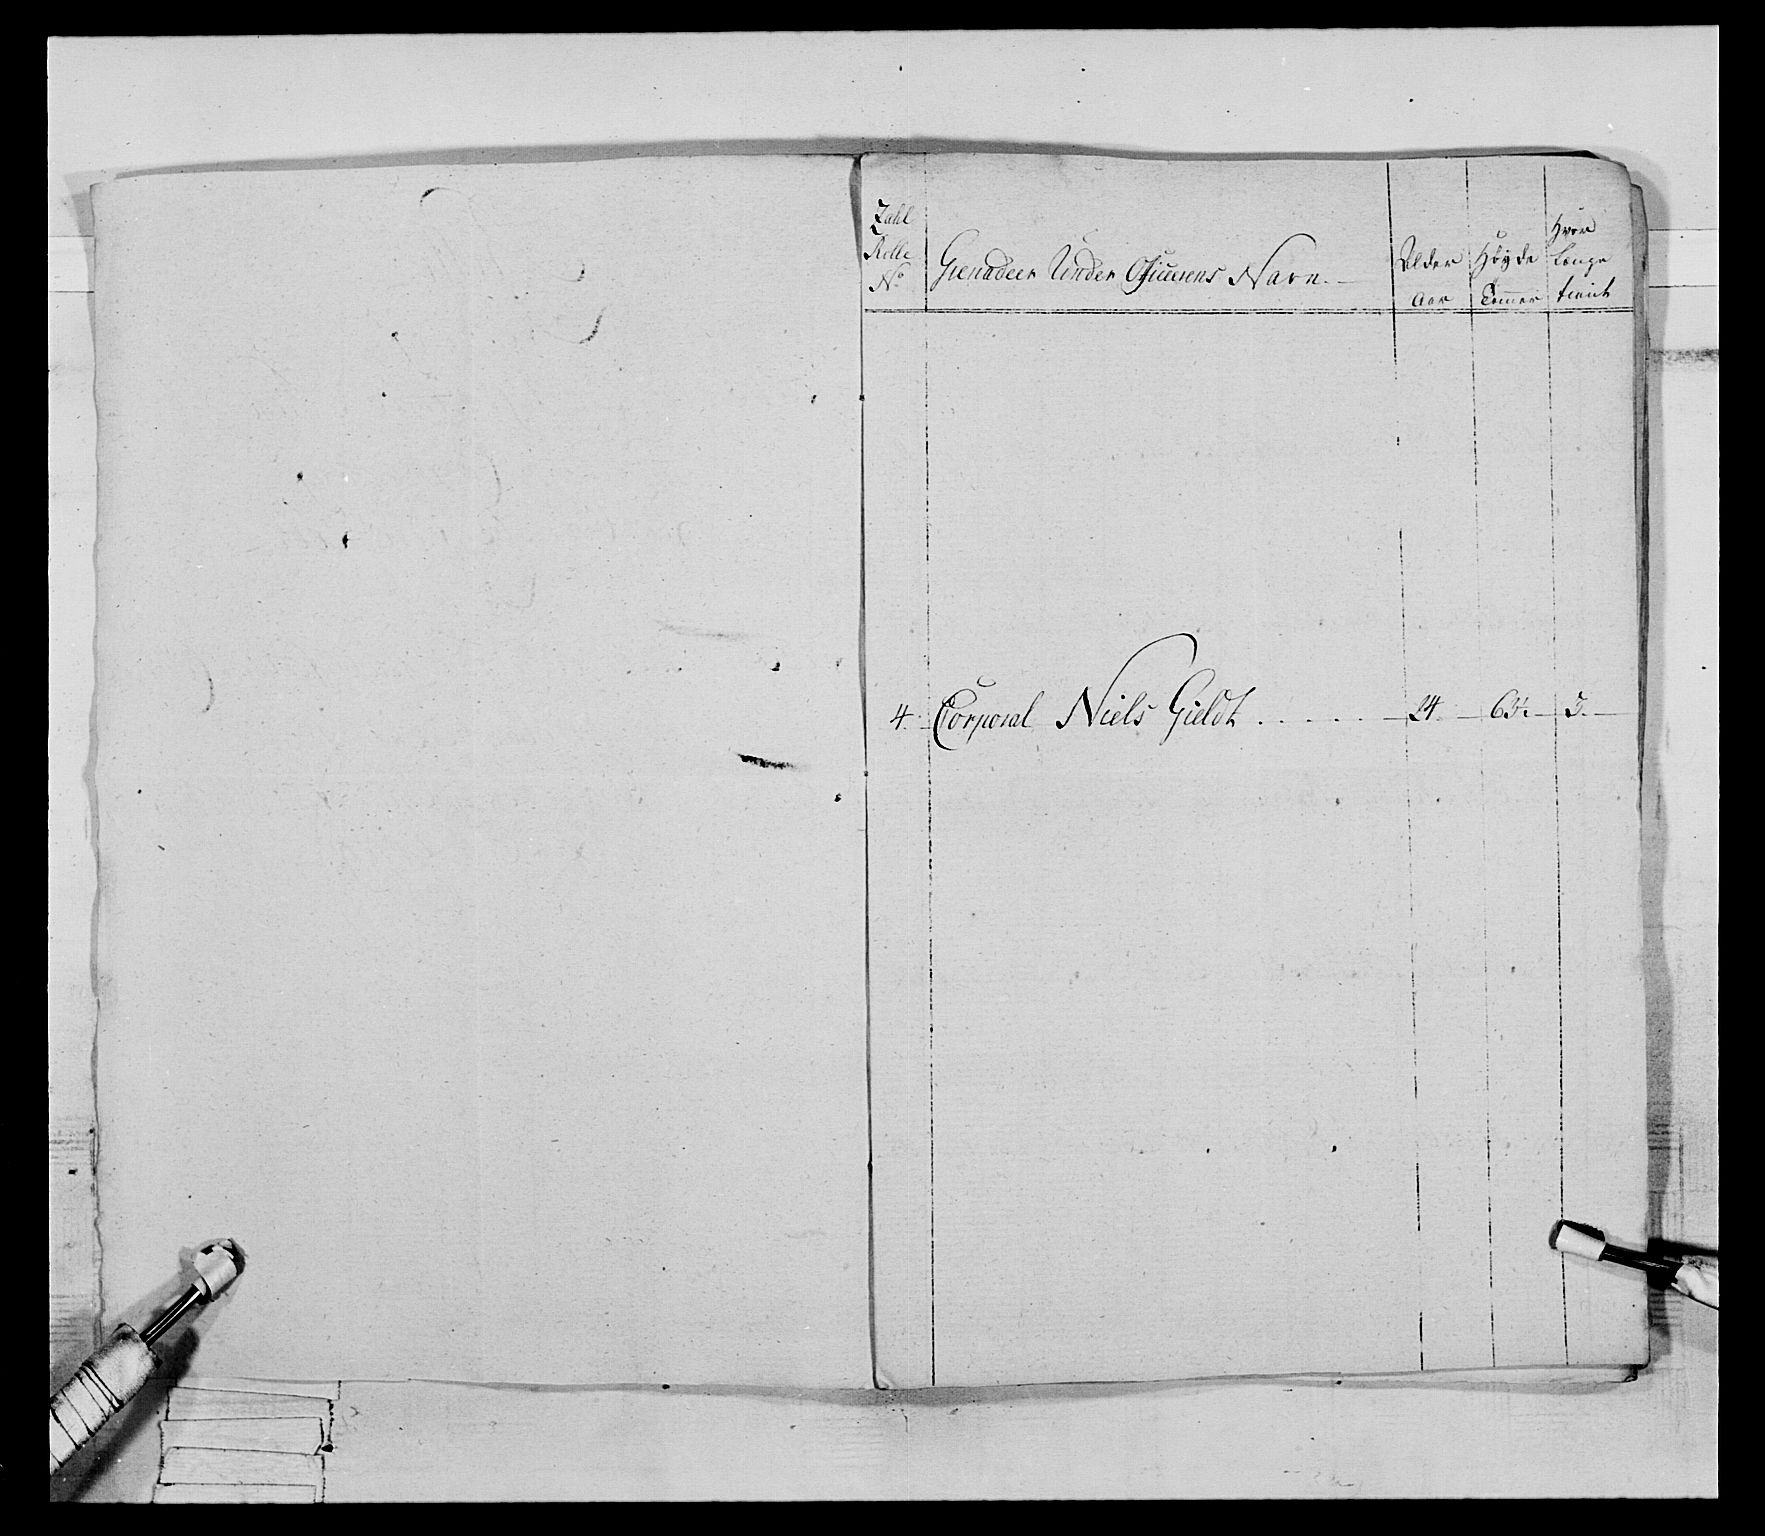 Zahl
Rolle
No
Grenadeer Under Officerens Navn.
Alder
Aar
Höyde
Tommer
Hvor
Længe
tient
4. Corporal Niels Gieldt . . . . . . 24. 63½ 3.